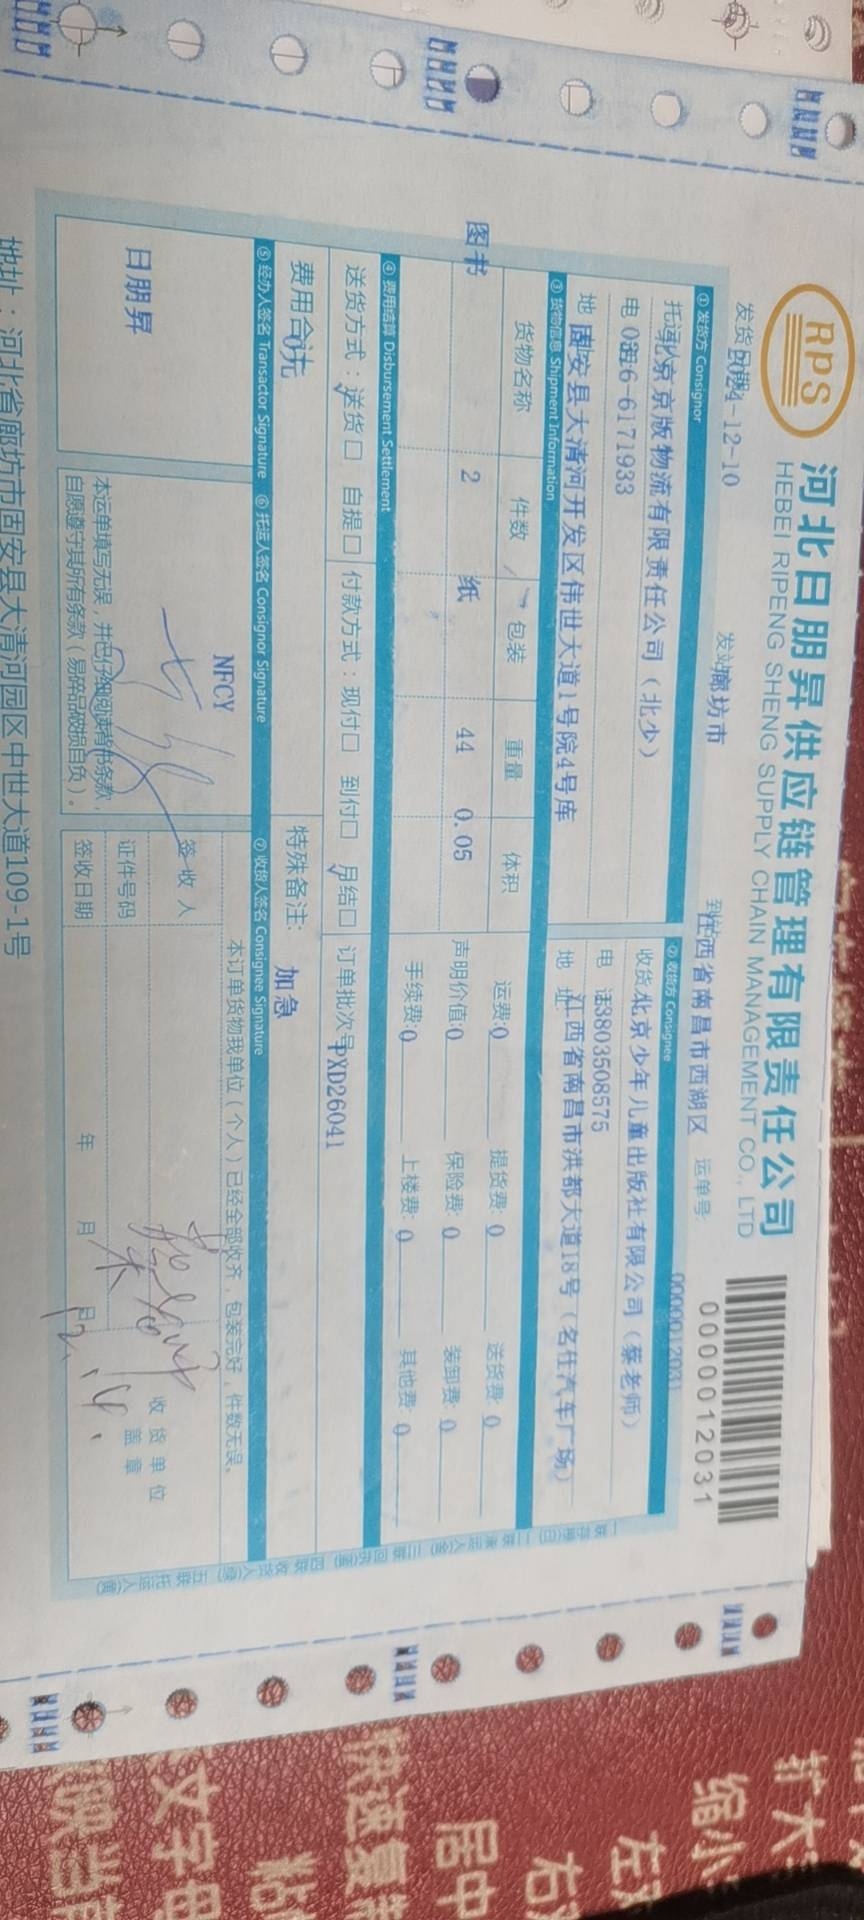 RPS
河北日朋昇供应链管理有限责任公司
HEBEI RIPENG SHENG SUPPLY CHAIN MANAGEMENT CO., LTD
0000012031
发货日期 2024-12-10
发站 廊坊市
到站 江西省南昌市西湖区
运单号:
0000012031
① 发货方 Consignor
托运 北京京版物流有限责任公司（北少）
电 0316-6171933
地 固安县大清河开发区伟世大道1号院4号库
② 收货方 Consignee
收货 北京少年儿童出版社有限公司（蔡老师）
电 话 13803508575
地 址 江西省南昌市洪都大道18号（名仕汽车广场）
③ 货物信息 Shipment Information
货物名称 件数 包装 重量 体积
图书 2 纸 44 0.05
运费:0 提货费: 0 送货费: 0
声明价值:0 保险费: 0 装卸费: 0
手续费:0 上楼费: 0 其他费: 0
④ 费用结算 Disbursement Settlement
送货方式：送货□ 自提□
付款方式：现付□ 到付□ 月结□
订单批次号 PXD26041
费用合计: 0元
特殊备注: 加急
⑤ 经办人签名 Transactor Signature
⑥ 托运人签名 Consignor Signature
⑦ 收货人签名 Consignee Signature
日朋昇
NFCY
本运单填写无误，并已仔细阅读背书条款，
自愿遵守其所有条款（易碎品破损自负）。
本订单货物我单位（个人）已经全部收齐，包装完好，件数无误。
签收人
证件号码
签收日期 年 月 日
收货单位
盖章
一联存根(白) 二联承运人(金) 三联回执(蓝) 四联收货人(绿) 五联托运人(黄)
地址：河北省廊坊市固安县大清河园区中世大道109-1号
扩大
缩小
左
右
居中
快速复制
粘
文字